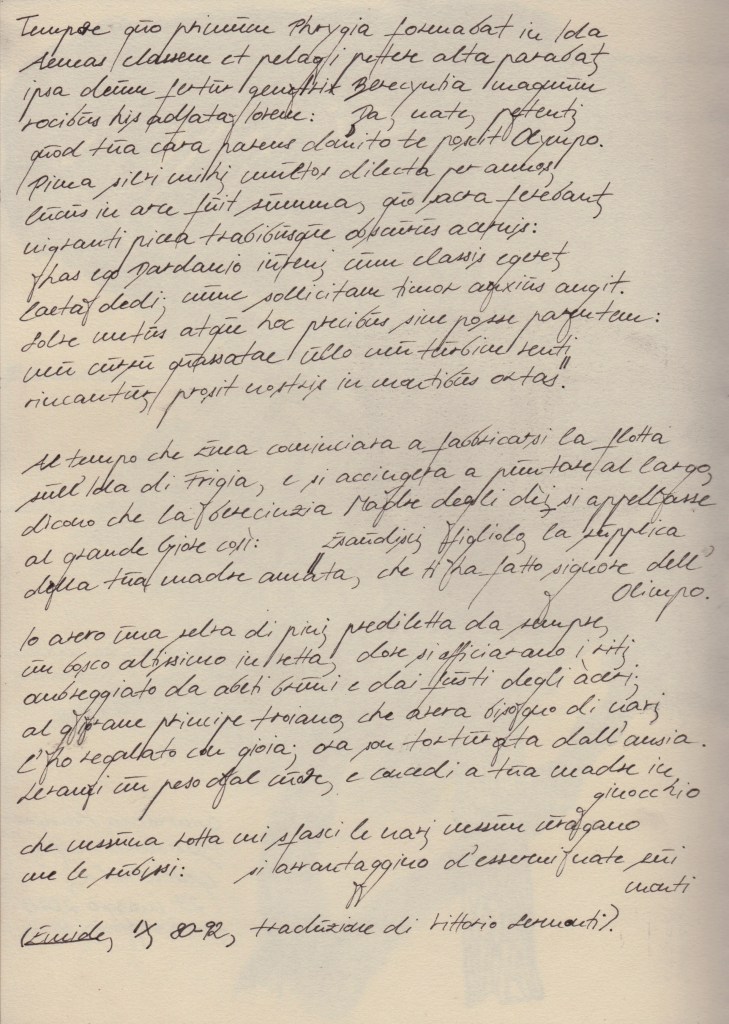 Tempore quo primum Phrygia formabat in Ida
Aeneas classem et pelagi petere alta parabat,
ipsa deum fertur genetrix Berecyntia magnum
vocibus his adfata Iovem: "Da, nate, petenti,
quod tua cara parens domito te poscit Olympo.
Pinea silva mihi, multos dilecta per annos,
lucus in arce fuit summa, quo sacra ferebant,
nigranti picea trabibusque obscurus acernis:
has ego Dardanio iuveni, cum classis egeret,
laeta dedi; nunc sollicitam timor anxius angit.
Solve metus atque hoc precibus sine posse parentem:
neu cursu quassatae ullo neu turbine venti
vincantur, prosit nostris in montibus ortas".
Al tempo che Enea cominciava a fabbricarsi la flotta
sull'Ida di Frigia, e si accingeva a puntare al largo,
dicono che la berecinzia Madre degli dèi, si appellasse
al grande Giove così: "Esaudisci, figliolo, la supplica
della tua madre amata, che ti ha fatto signore dell'
Olimpo.
Io avevo una selva di pini, prediletta da sempre,
un bosco altissimo in vetta, dove si officiavano i riti,
ombreggiato da abeti bruni e dai fusti degli àceri;
al giovane principe troiano, che aveva bisogno di navi,
l'ho regalato con gioia; ora son torturata dall'ansia.
Levami un peso dal cuore, e concedi a tua madre in
ginocchio
che nessuna rotta mi sfasci le navi, nessun uragano
me le subissi: si avvantaggino d'essermi nate sui
monti
(Eneide, IX, 80-92, traduzione di Vittorio Sermonti).